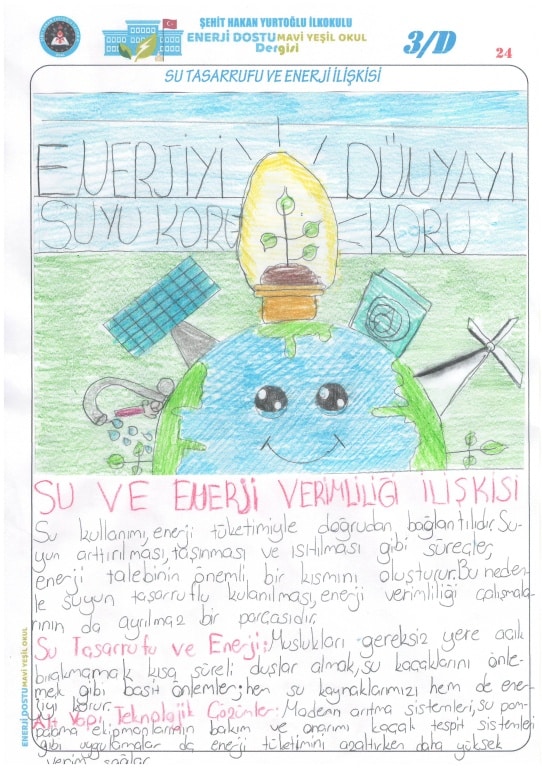 ŞEHİT HAKAN YURTOĞLU İLKOKULU
ENERJİ DOSTU MAVİ YEŞİL OKUL
Dergisi
3/D
24
SU TASARRUFU VE ENERJİ İLİŞKİSİ
ENERJİYİ DÜNYAYI
SUYU KORU KORU
SU VE ENERJİ VERİMLİLİĞİ İLİŞKİSİ
Su kullanımı, enerji tüketimiyle doğrudan bağlantılıdır. Su-
yun arttırılması, taşınması ve ısıtılması gibi süreçler,
enerji talebinin önemli bir kısmını oluşturur. Bu neden-
le suyun tasarruflu kulanılması, enerji verimliliği çalışmala-
rının da ayrılmaz bir parçasıdır.
Su Tasarrufu ve Enerji: Muslukları gereksiz yere açık
bırakmamak kısa süreli duşlar almak, su kaçaklarını önle-
mek gibi basit önlemler; hem su kaynaklarımızı hem de ener-
jiyi korur.
Alt Yapı Teknolojik Çözümler: Modern arıtma sistemleri, su pom-
palama ekipmanlarının bakım ve onarımı kaçak tespit sistemleri
gibi uygulamalar da enerji tüketimini azaltırken daha yüksek
verim sağlar.
ENERJİ DOSTU MAVİ YEŞİL OKUL